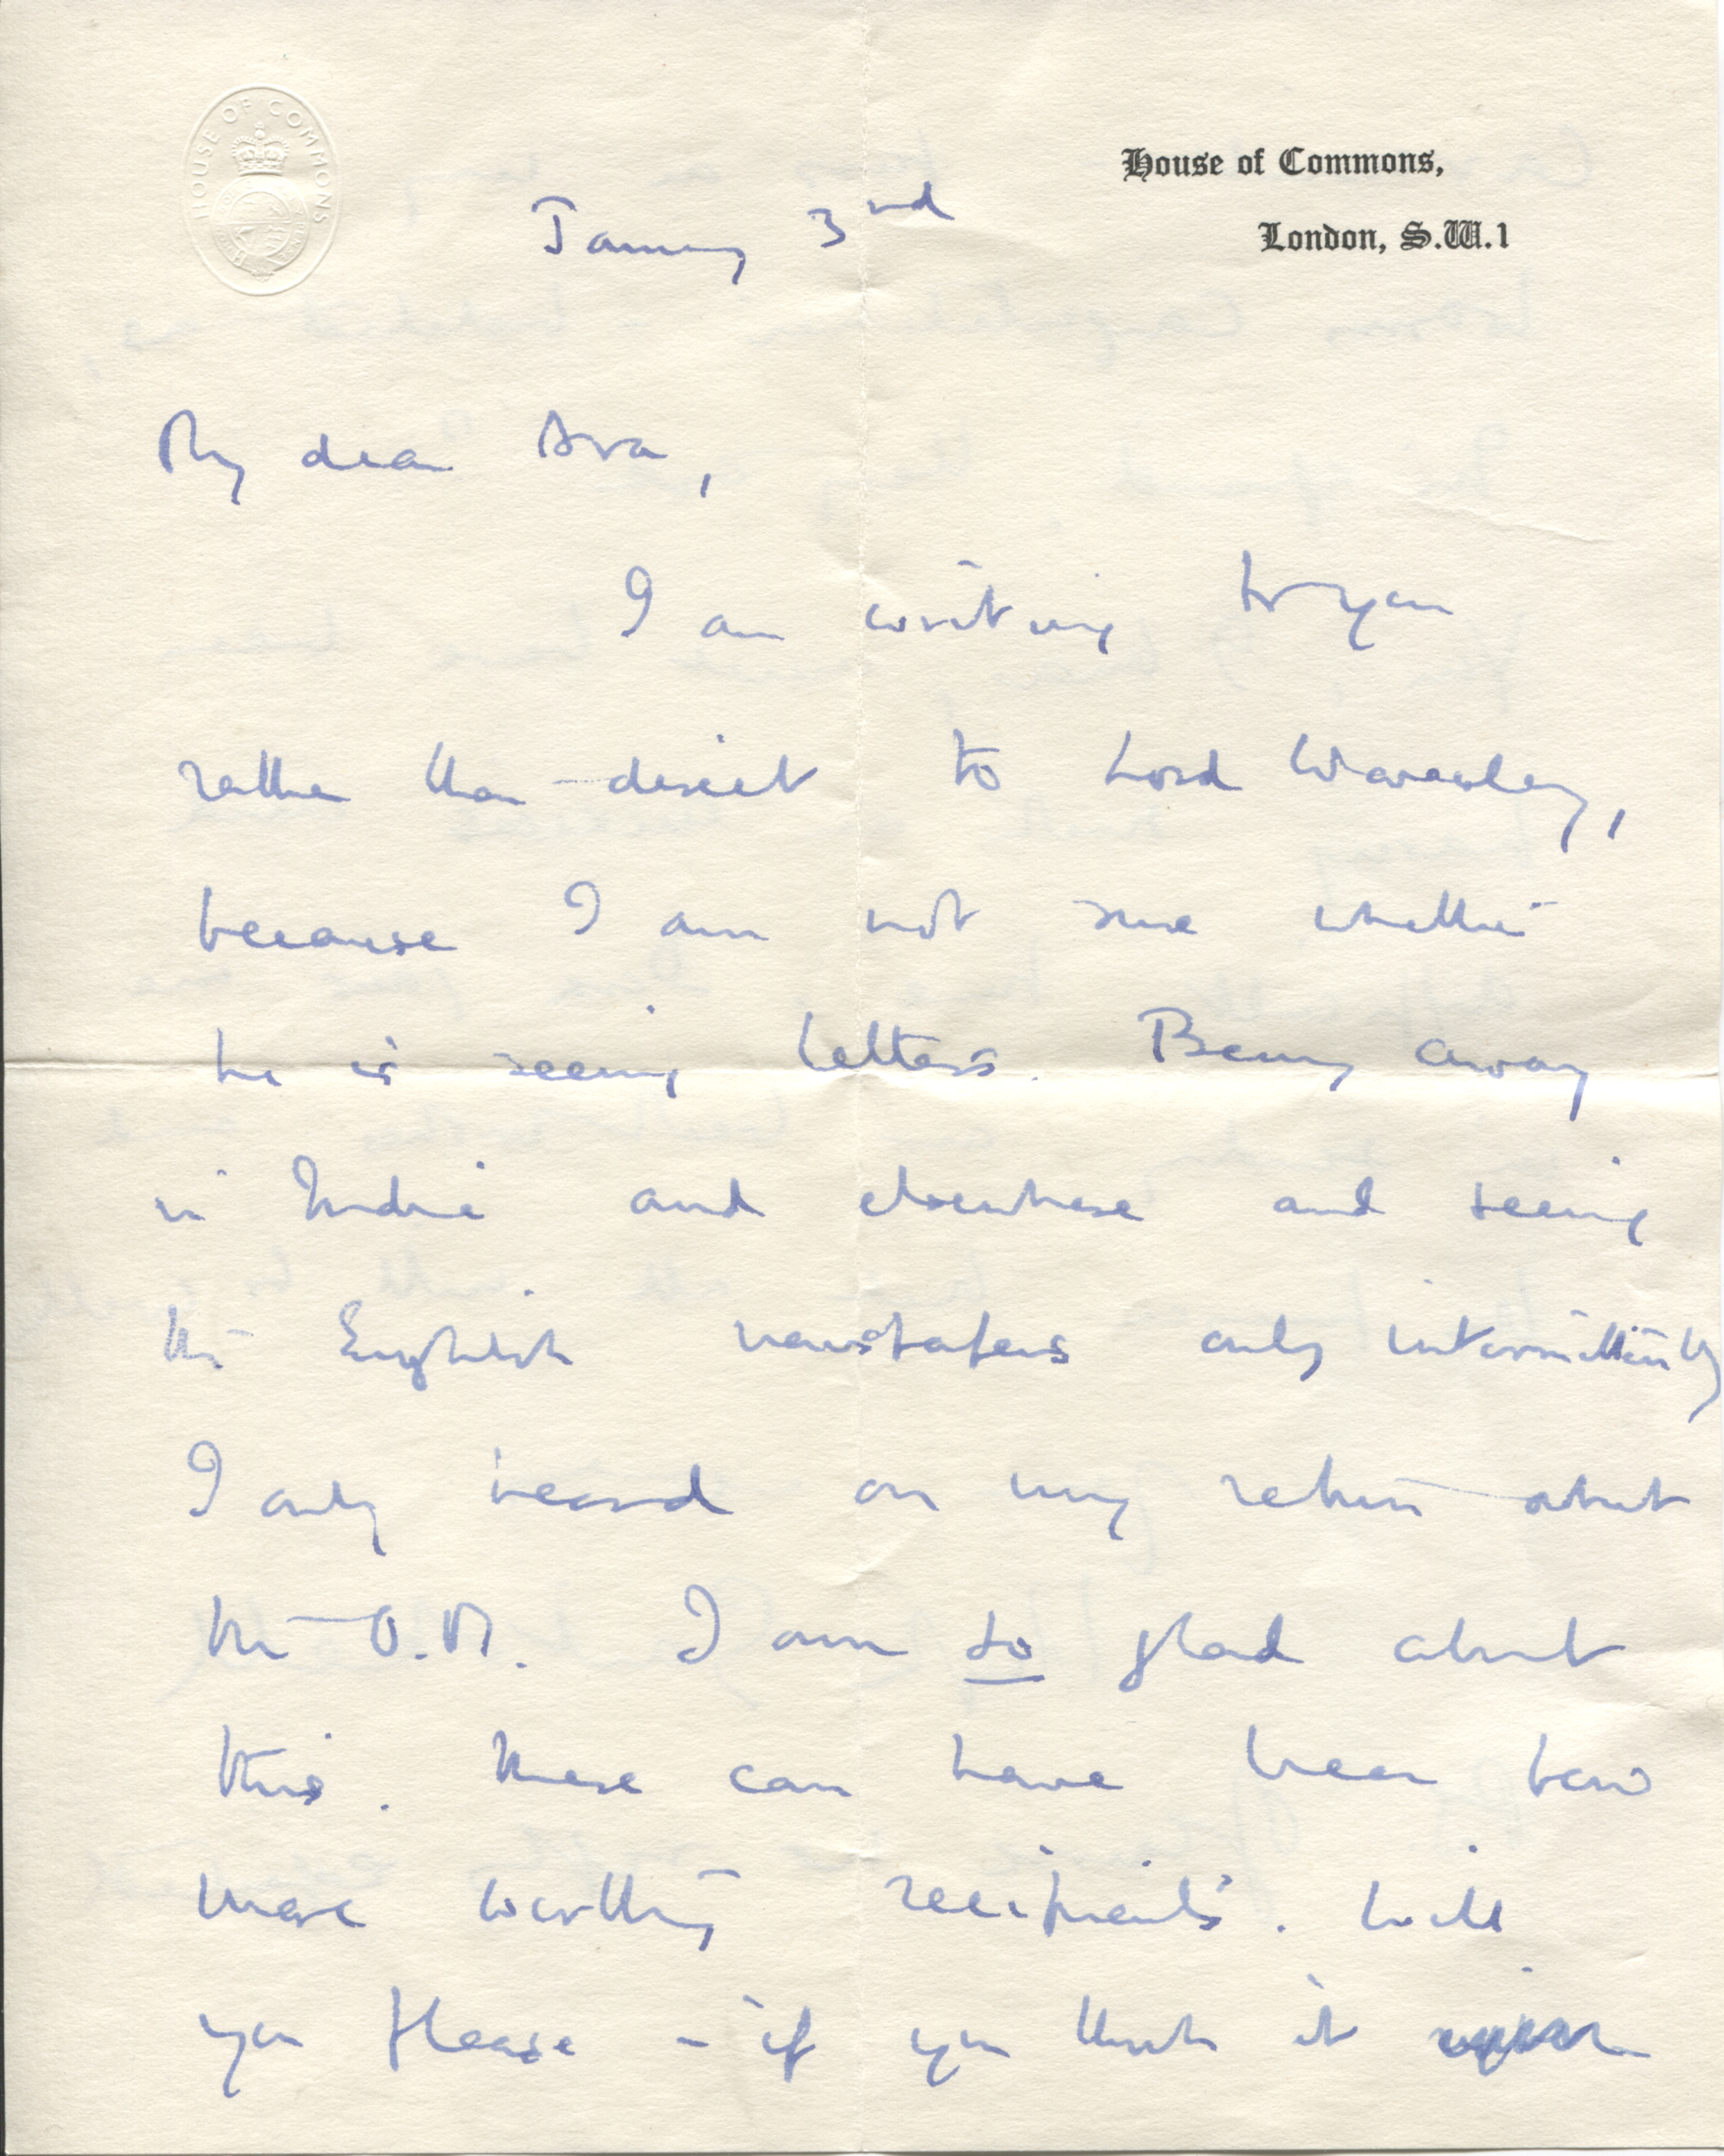 HOUSE OF COMMONS
House of Commons,
London, S.W.1
January 3rd
My dear Ava,
I am writing to you
rather than direct to Lord Waverley,
because I am not sure whether
he is seeing letters. Being away
in India and elsewhere and seeing
the English newspapers only intermittently
I only heard on my return about
the O.M. I am so glad about
this. There can have been few
more worthy recipients. Will
you please – if you think it